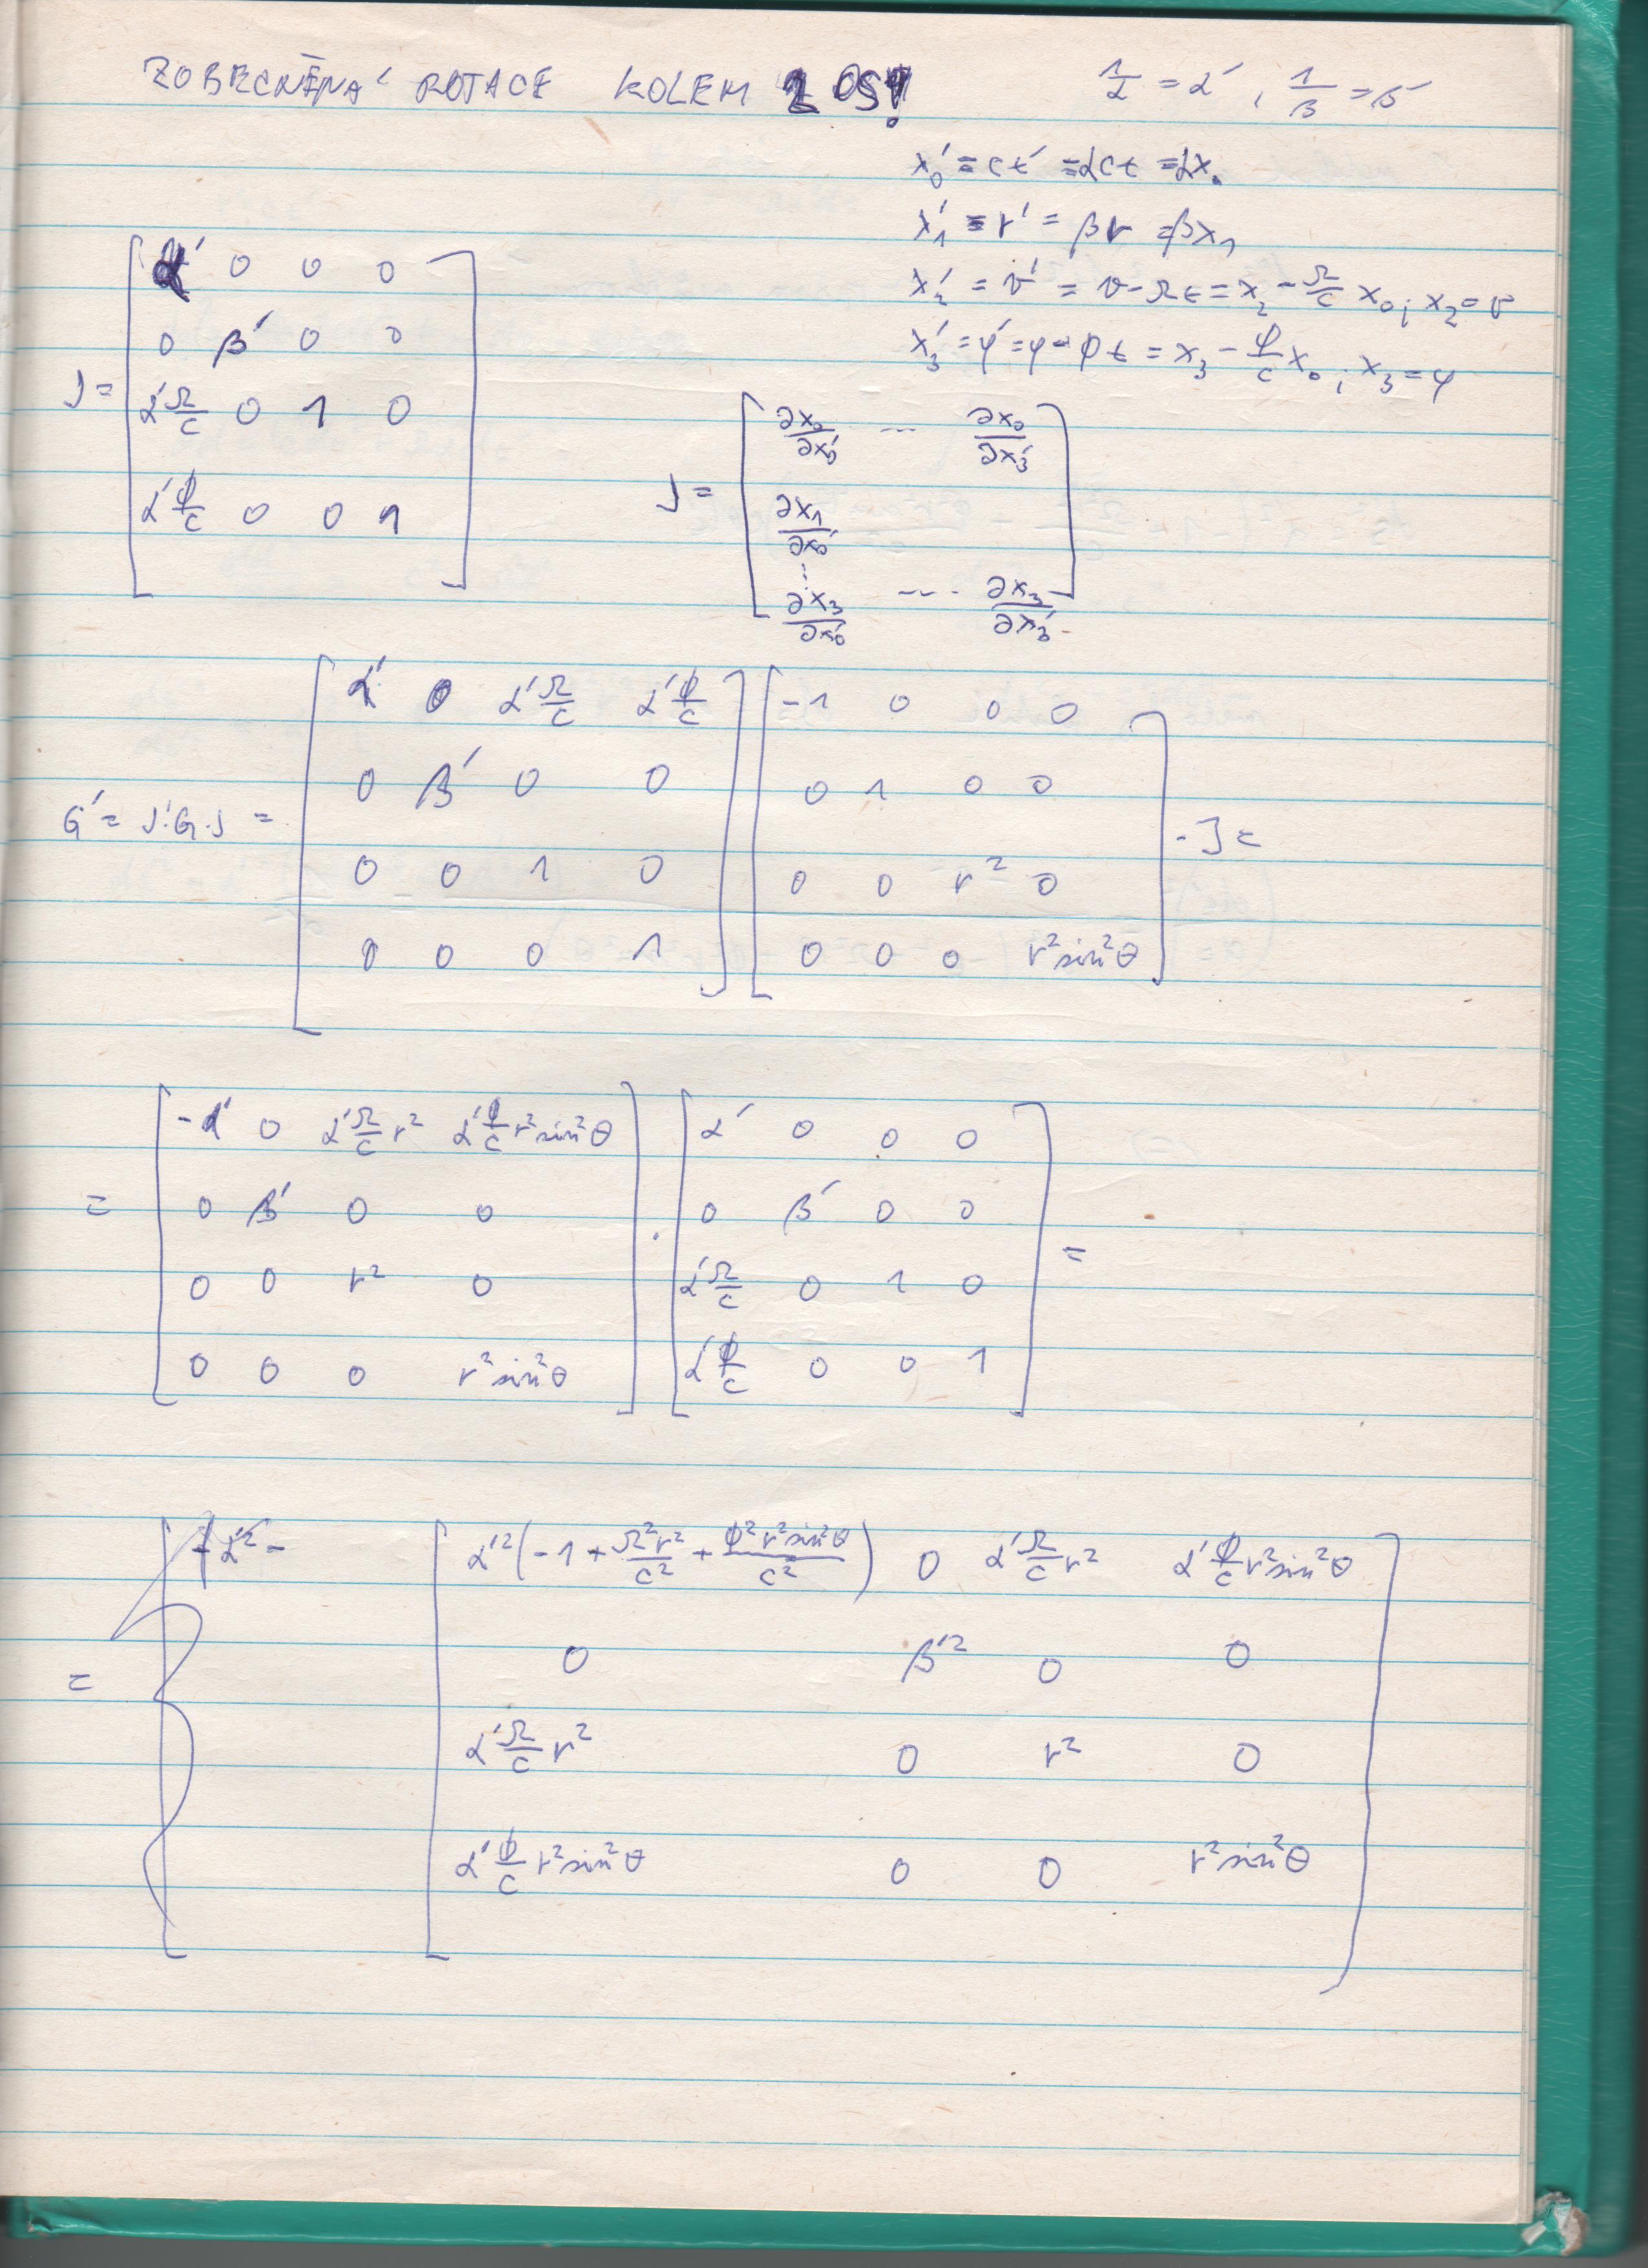 ZOBECNĚNÁ ROTACE KOLEM 2 OS! 1/α = α′, 1/β = β′
x₀′ = ct′ = αct = αx₀
x₁′ = r′ = βr = βx₁
x₂′ = ϑ′ = ϑ - Ωt = x₂ - Ω/c x₀; x₂ = ϑ
x₃′ = φ′ = φ - Φt = x₃ - Φ/c x₀; x₃ = φ
J = [ α′ 0 0 0
0 β′ 0 0
α′Ω/c 0 1 0
α′Φ/c 0 0 1 ]
J = [ ∂x₀/∂x₀′ ... ∂x₀/∂x₃′
∂x₁/∂x₀′
⋮
∂x₃/∂x₀′ ... ∂x₃/∂x₃′ ]
G′ = J′.G.J = [ α′ 0 α′Ω/c α′Φ/c ] [ -1 0 0 0 ]
0 β′ 0 0 0 1 0 0 · J =
0 0 1 0 0 0 r² 0
0 0 0 1 0 0 0 r²sin²θ
= [ -α′ 0 α′Ω/c r² α′Φ/c r²sin²θ ] · [ α′ 0 0 0 ] =
0 β′ 0 0 0 β′ 0 0
0 0 r² 0 α′Ω/c 0 1 0
0 0 0 r²sin²θ α′Φ/c 0 0 1
= [ α′²(-1 + Ω²r²/c² + Φ²r²sin²θ/c²) 0 α′Ω/c r² α′Φ/c r²sin²θ
0 β′² 0 0
α′Ω/c r² 0 r² 0
α′Φ/c r²sin²θ 0 0 r²sin²θ ]